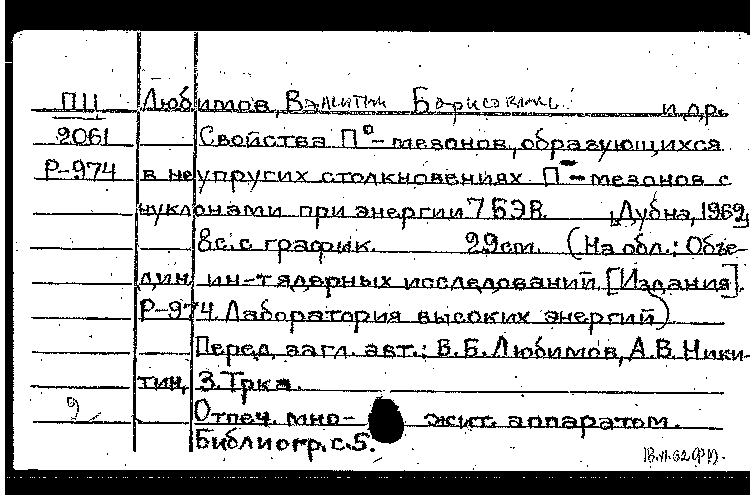 ПШ Любимов, Валентин Борисович и др.
2061 Свойства П°-мезонов, образующихся
Р-974 в неупругих столкновениях П⁻-мезонов с
нуклонами при энергии 7 БЭВ. Дубна, 1962,
8с. с график. 29см. (На обл.: Объе-
дин. ин-т ядерных исследований. [Издания].
Р-974. Лаборатория высоких энергий)
Перед загл. авт.: В.Б. Любимов, А.В. Ники-
тин, З. Трка.
2 Отпеч. мно- жит. аппаратом.
Библиогр. с. 5.